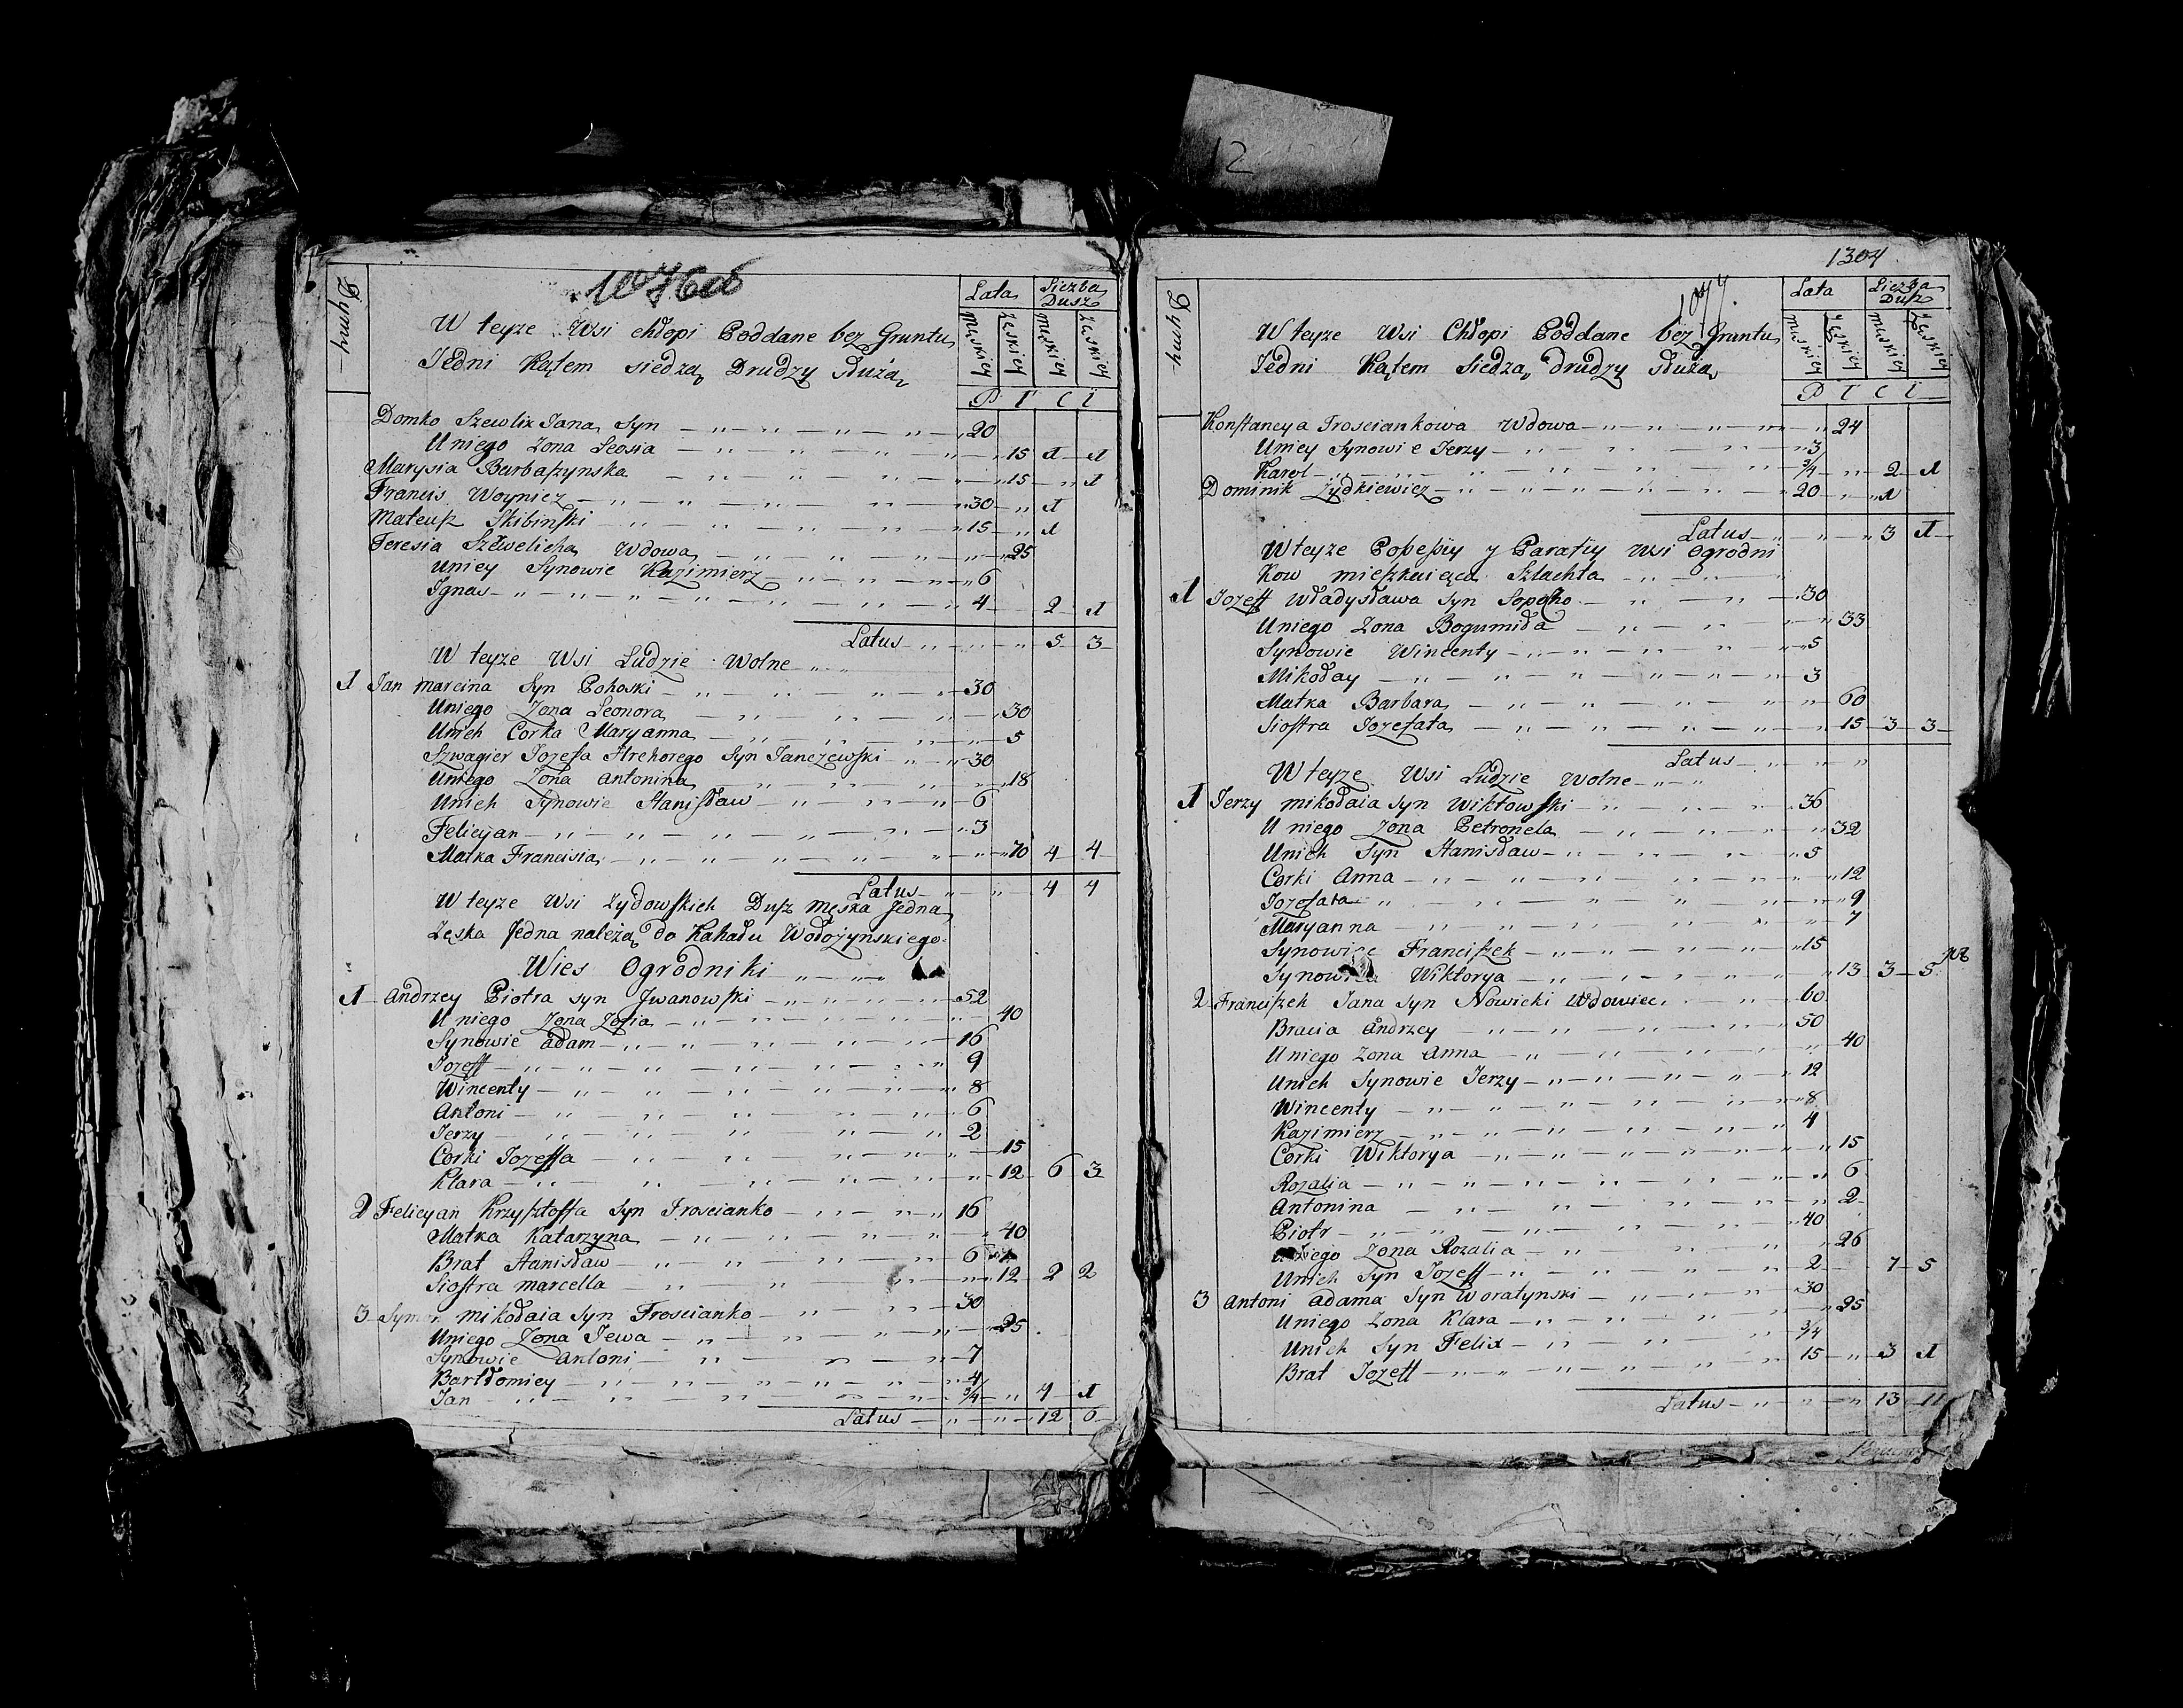 12
1076 об
Dymy
Lata
Liczba Dusz
Męskiey
Żęskiey
Męskiey
Żęskiey
W teyze Wsi chłopi Poddane bez Gruntu
Jedni Kątem siedzą Drudzy służą
P T C T
Domko Szewlix Jana Syn 20
Uniego Zona Leosia 15 1 1
Marysia Barbaszynska 15 1
Francis Woynicz 30 1
Mateusz Skibinski 15 1
Teresia Szewelicha Wdowa 25
Uniey Synowie Kazimierz 6
Ignas 4 2 1
Latus 5 3
W teyze Wsi Ludzie Wolne
1 Jan Marcina Syn Pohoski 30
Uniego Zona Leonora 30
Unich Corka Maryanna 5
Szwagier Jozefa Hrehorego Syn Janczewski 30
Uniego Zona Antonina 18
Unich Synowie Stanisław 6
Felicyan 3
Matka Francisia 70 4 4
Latus 4 4
W teyze Wsi Zydowskich Dusz Męska Jedna
Zęska Jedna należą do Kahału Wołożynskiego
Wies Ogrodniki
1 Andrzey Piotra Syn Jwanowski 52
Uniego Zona Zofia 40
Synowie Adam 16
Jozeff 9
Wincenty 8
Antoni 6
Jerzy 2
Corki Jozeffa 15
Klara 12 6 3
2 Felicyan Krzysztoffa Syn Troscianko 16
Matka Katarzyna 40
Brat Stanisław 6
Siostra Marcella 12 2 2
3 Symon Mikołaia Syn Troscianko 30
Uniego Zona Jewa 25
Synowie Antoni 7
Bartłomiey 4
Jan 3/4 4 1
Latus 12 6
1304
1077
Dymy
Lata
Liczba Dusz
Męskiey
Żęskiey
Męskiey
Żęskiey
W teyze Wsi Chłopi Poddane bez Gruntu
Jedni Kątem Siedzą drudzy służą
P T C T
Konstancya Trosciankowa Wdowa 24
Uniey Synowie Jerzy 3
Karol 3/4 2 1
Dominik Zydkiewicz 20 1
Latus 3 1
W teyze Possessyy y Parafiy Wsi Ogrodni
Kow mieszkaiąca Szlachta
1 Jozeff Władysława Syn Sopoćko 30
Uniego Zona Bogumiła 33
Synowie Wincenty 5
Mikołay 3
Matka Barbara 60
Siostra Jozefata 15 3 3
Latus
W teyze Wsi Ludzie Wolne
1 Jerzy Mikołaia Syn Wiktowski 36
Uniego Zona Petronela 32
Unich Syn Stanisław 5
Corki Anna 12
Jozefata 9
Maryanna 7
Synowiec Franciszek 15
Synowica Wiktorya 13 3 5
2 Franciszek Jana Syn Nowicki Wdowiec 60
Bracia Andrzey 50
Uniego Zona Anna 40
Unich Synowie Jerzy 12
Wincenty 8
Kazimierz 4
Corki Wiktorya 15
Rozalia 6
Antonina 2
Piotr 40
Uniego Zona Rozalia 26
Unich Syn Jozeff 2 7 5
3 Antoni Adama Syn Woratynski 30
Uniego Zona Klara 25
Unich Syn Felix 3/4
Brat Jozeff 15 3 1
Latus 13 11